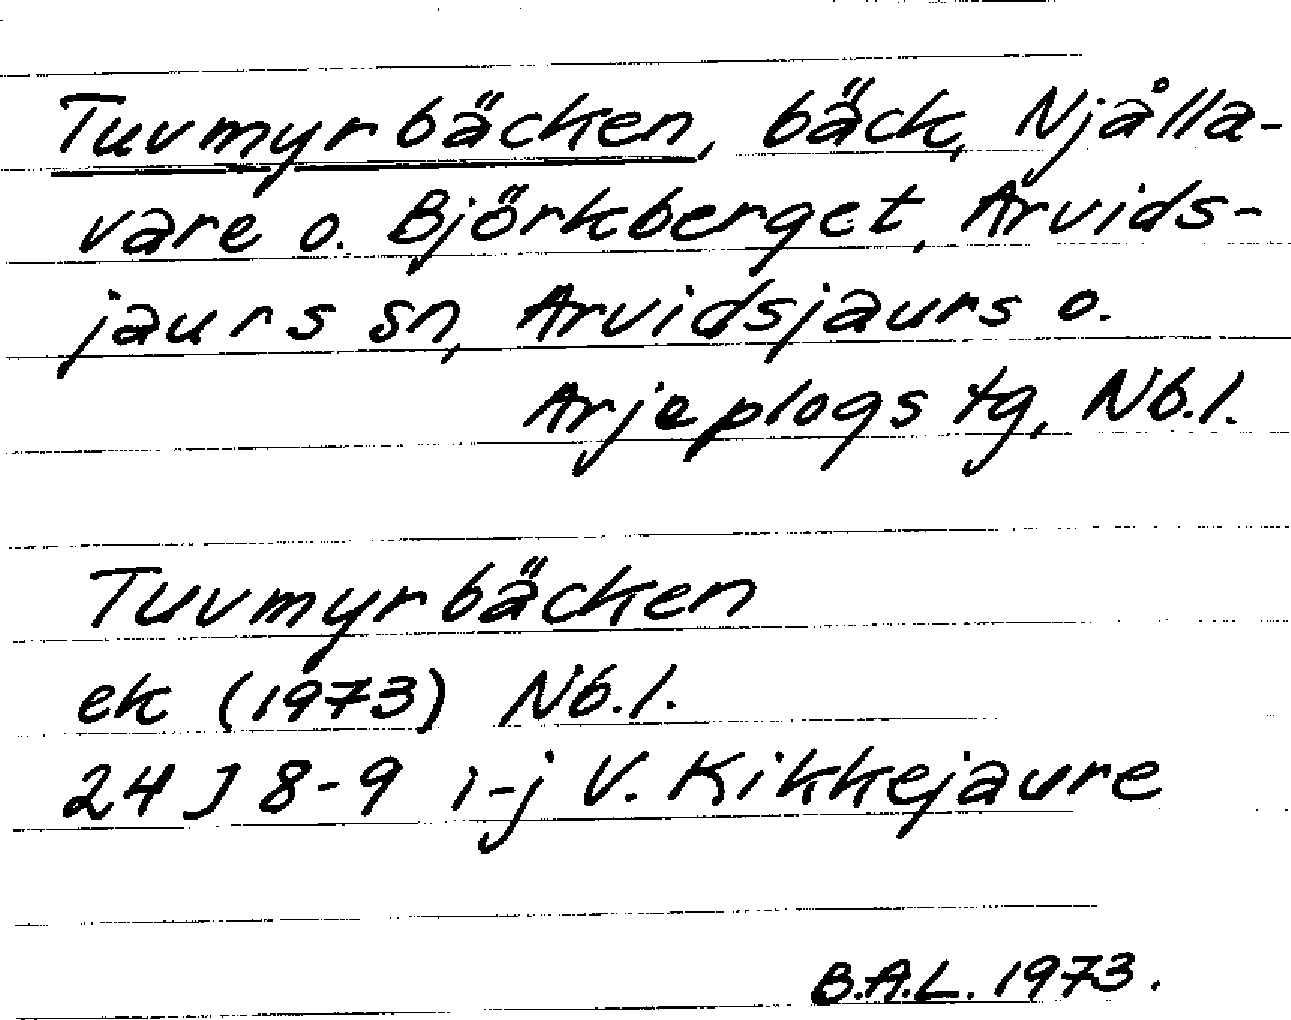 Tuvmyrbäcken, bäck, Njålla-
vare o. Björkberget, Arvids-
jaurs sn, Arvidsjaurs o.
Arjeplogs tg, Nb.l.
Tuvmyrbäcken
ek (1973) Nb.l.
24 J 8-9 i-j V. Kikkejaure
B.A.L. 1973.